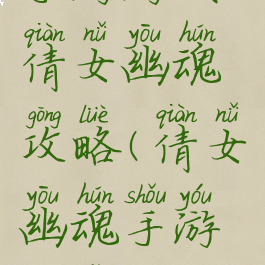 qiàn nǚ yōu hún
倩女幽魂
gōng lüè ( qiàn nǚ
攻略(倩女
yōu hún shǒu yóu
幽魂手游